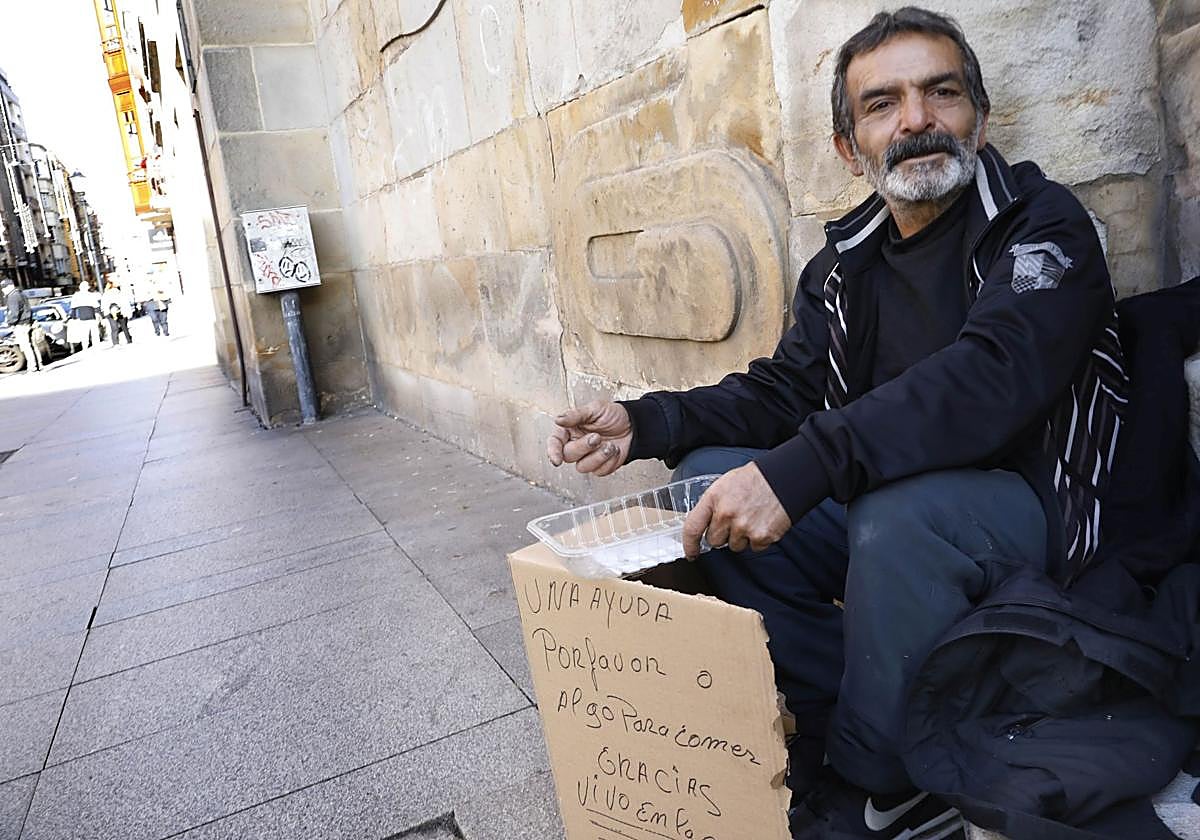 UNA AYUDA
Porfavor o
Algo Para comer
GRACIAS
VIVO En La